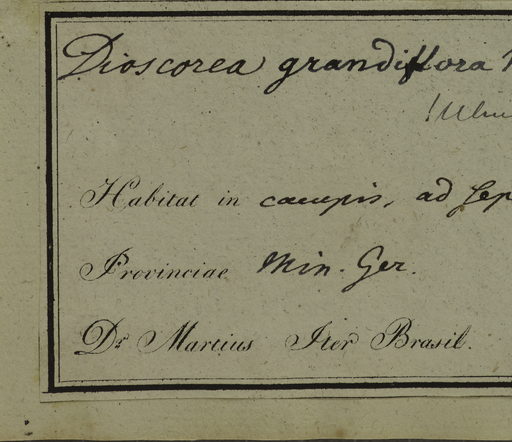 Dioscorea grandiflora
Habitat in campis, ad sep
Provinciae Min. Ger.
Dr. Martius Iter Brasil.